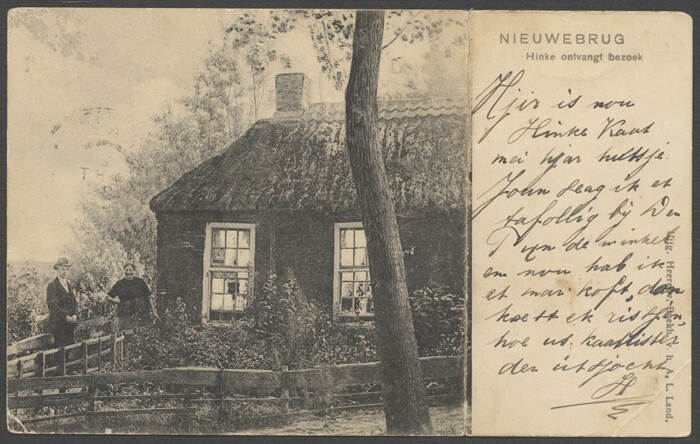 NIEUWEBRUG
Hinke ontvangt bezoek
Hjir is nou
Hinke Kaat
mei hjar huttsje.
Joun seag ik et
tafollig by Den
Tyn de winkel
en nou hab ik
et mar koft, dan
kaest ek risſjen,
hoe us kaartister
der útsjocht
H
Uitg. Heerenv. Boekh. v. h. A. L. Land.